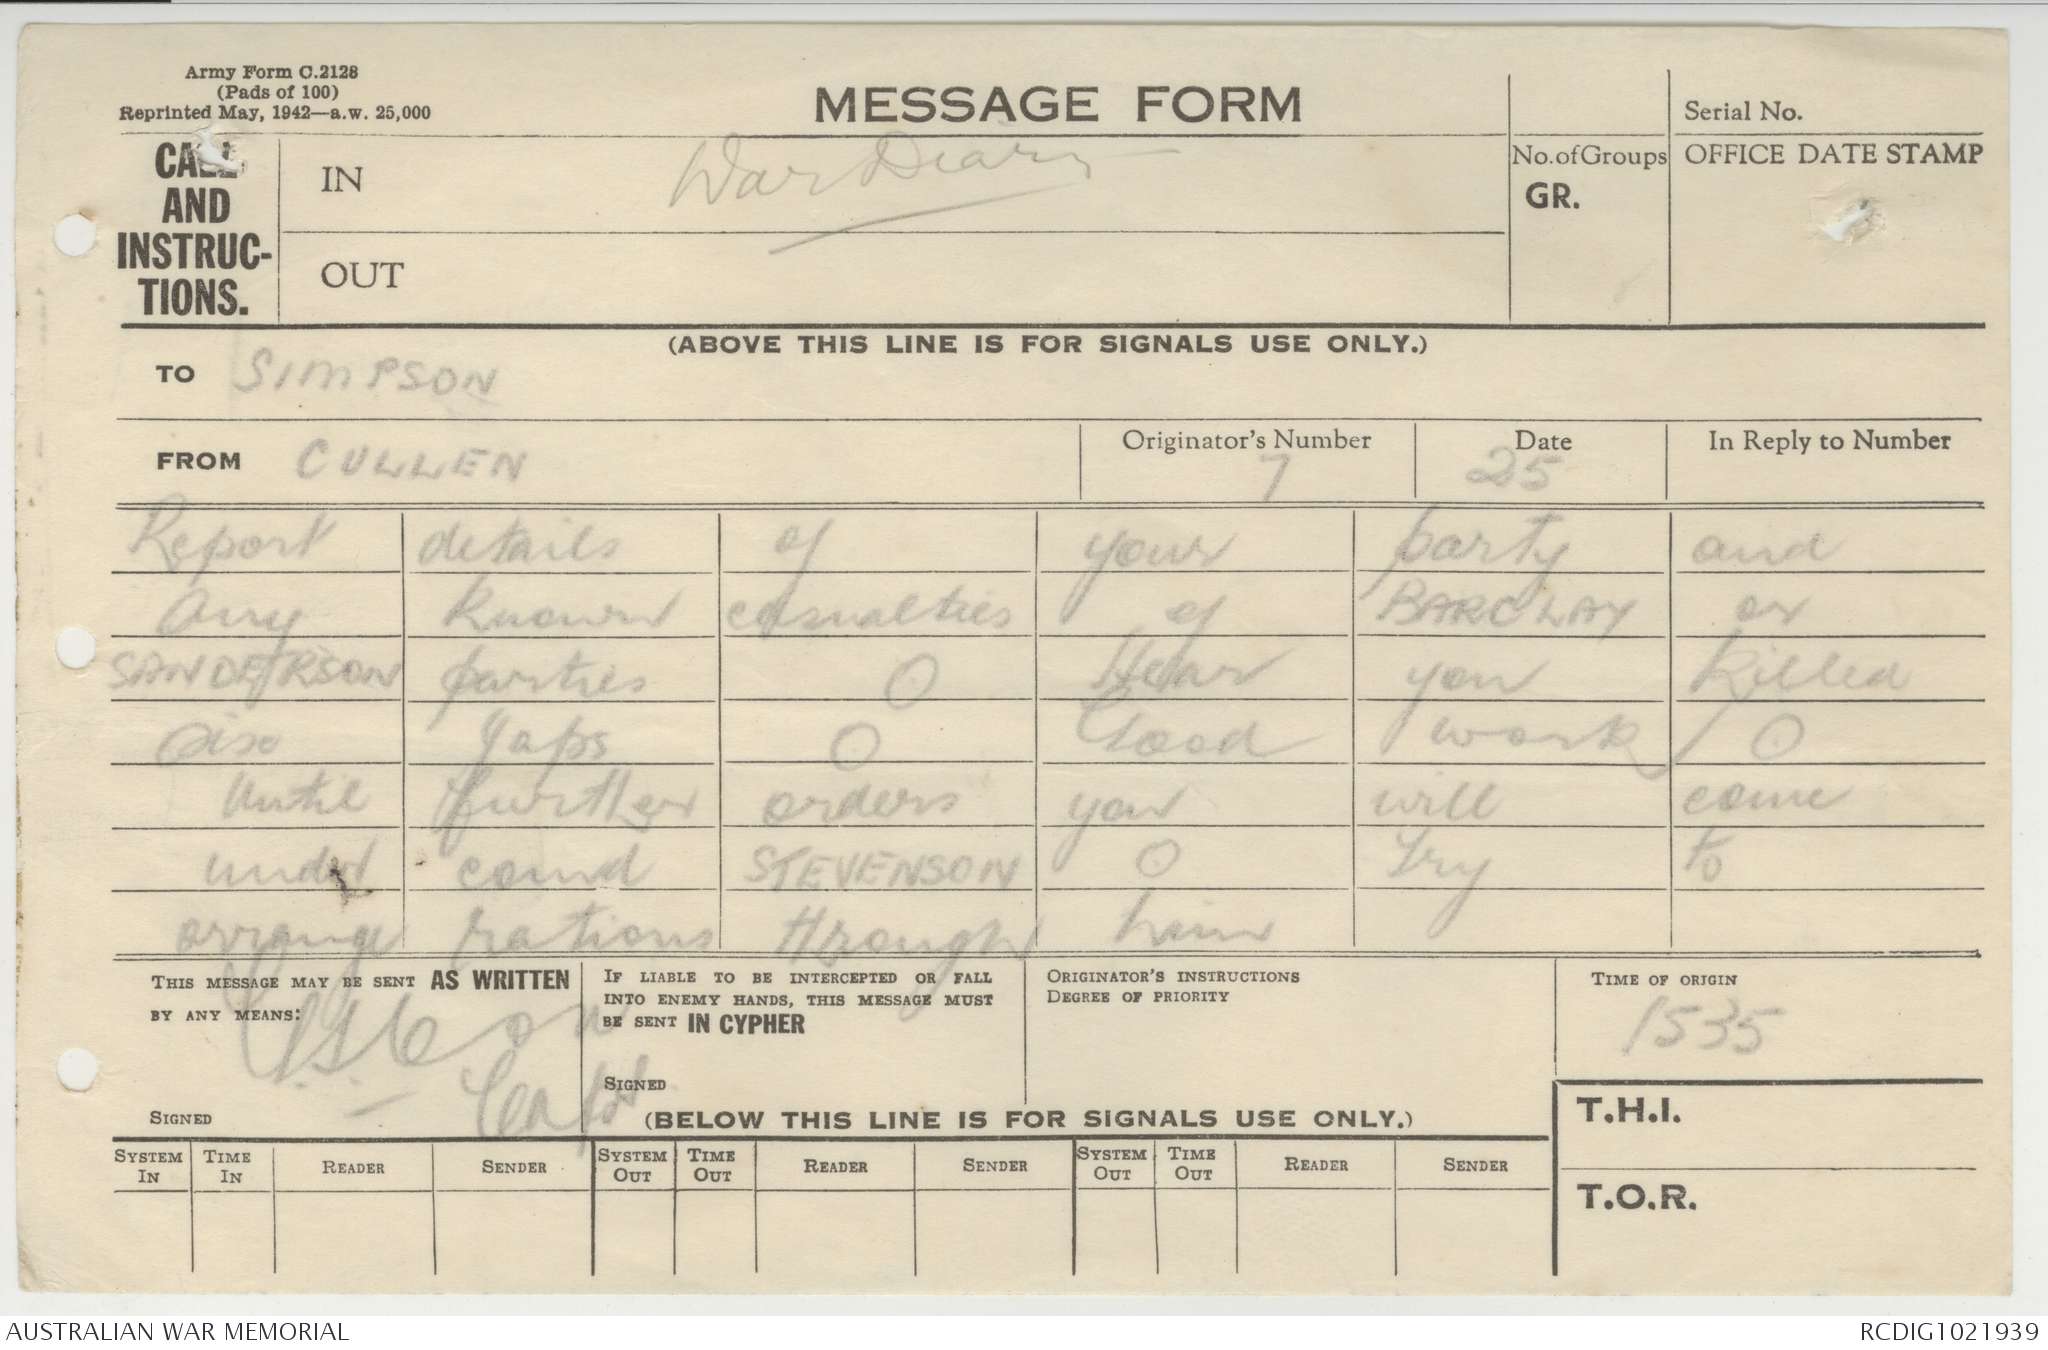 Army Form C.2128
(Pads of 100)
Reprinted May, 1942—a.w. 25,000
MESSAGE FORM
Serial No.
CALL AND INSTRUC-TIONS.
IN
War Diary
No. of Groups
GR.
OFFICE DATE STAMP
OUT
(ABOVE THIS LINE IS FOR SIGNALS USE ONLY.)
TO SIMPSON
FROM CULLEN
Originator's Number 7
Date 25
In Reply to Number
Report details of your party and
any known casualties of BARCLAY or
SANDERSON parties O Hear you killed
six Japs O Good work O
Until further orders you will come
under comd STEVENSON O Try to
arrange rations through him
THIS MESSAGE MAY BE SENT AS WRITTEN
BY ANY MEANS:
SIGNED
Capt
IF LIABLE TO BE INTERCEPTED OR FALL
INTO ENEMY HANDS, THIS MESSAGE MUST
BE SENT IN CYPHER
SIGNED
ORIGINATOR'S INSTRUCTIONS
DEGREE OF PRIORITY
TIME OF ORIGIN
1535
(BELOW THIS LINE IS FOR SIGNALS USE ONLY.)
T.H.I.
T.O.R.
SYSTEM IN TIME IN READER SENDER SYSTEM OUT TIME OUT READER SENDER SYSTEM OUT TIME OUT READER SENDER
AUSTRALIAN WAR MEMORIAL
RCDIG1021939